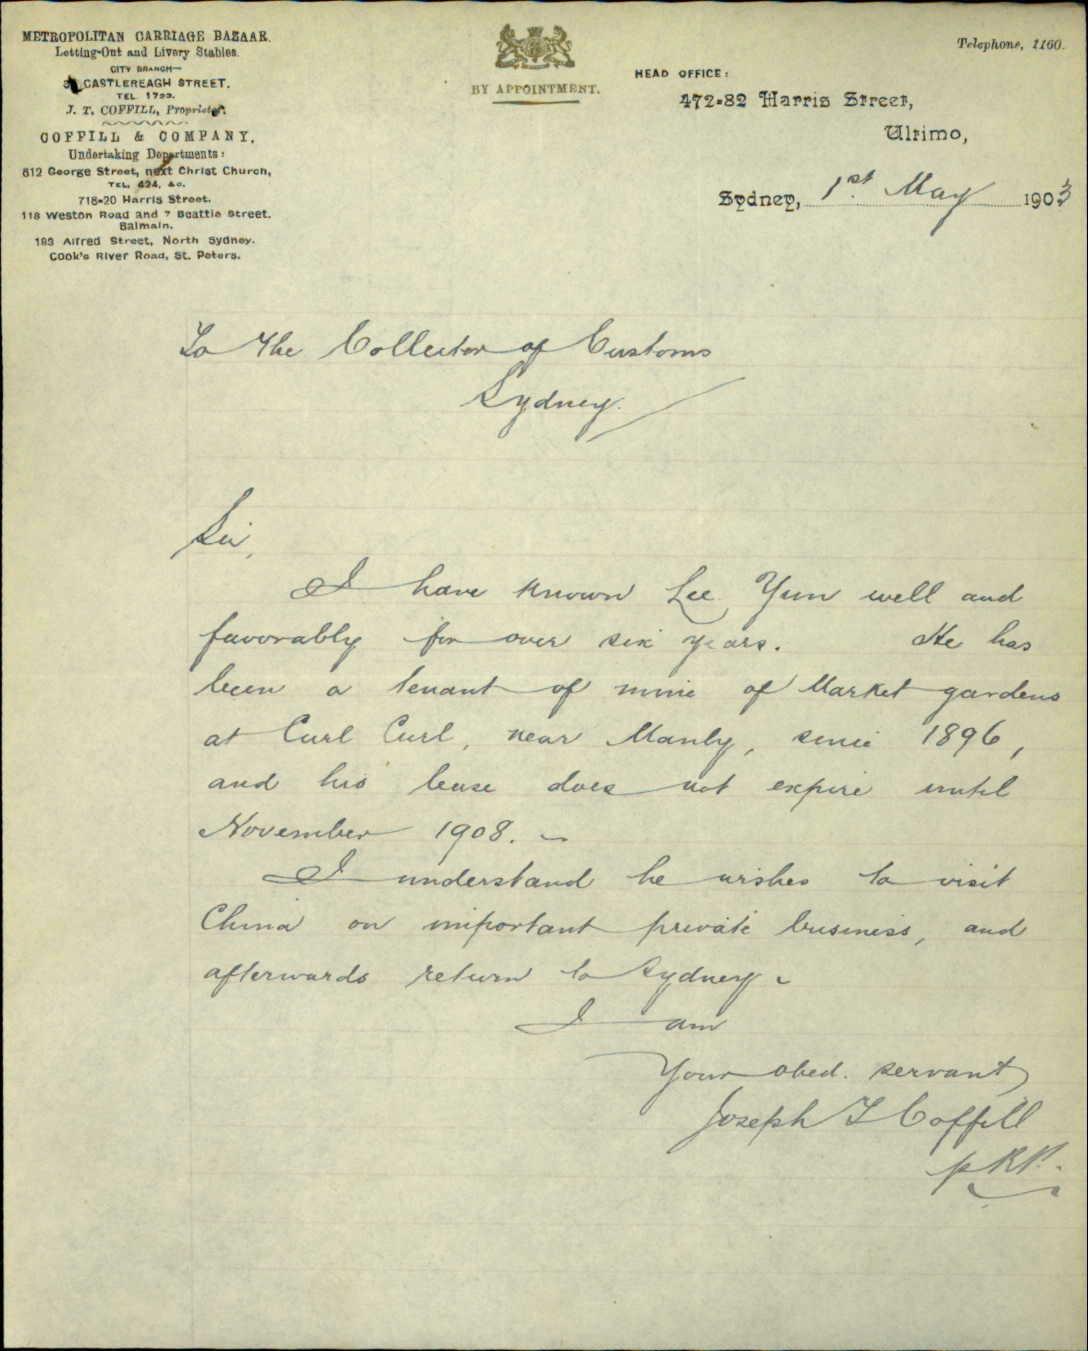 METROPOLITAN CARRIAGE BAZAAR.
Letting-Out and Livery Stables.
CITY BRANCH—
CASTLEREAGH STREET.
TEL.
J. T. COFFILL, Proprietor.
COFFILL & COMPANY,
Undertaking Departments:
812 George Street, next Christ Church,
TEL. 424, &c.
718-20 Harris Street.
118 Weston Road and 7 Beattie Street,
Balmain.
193 Alfred Street, North Sydney.
Cook's River Road, St. Peters.
BY APPOINTMENT.
Telephone, 1160.
HEAD OFFICE:
472-82 Harris Street,
Ultimo,
Sydney, 1st. May 1903
To the Collector of Customs
Sydney.
Sir,
I have known Lee Yun well and
favorably for over six years. He has
been a tenant of mine of Market gardens
at Curl Curl, near Manly, since 1896,
and his lease does not expire until
November 1908. —
I understand he wishes to visit
China on important private business, and
afterwards return to Sydney.
I am
Your obed. servant
Joseph T Coffill